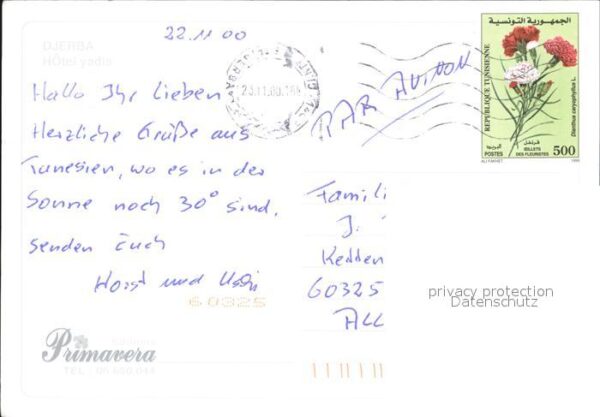 22.11 00
DJERBA
Hôtel yadis
Hallo Ihr Lieben,
Herzliche Grüße aus
Tunesien, wo es in der
Sonne noch 30° sind,
senden Euch
Horst und
60325
Primavera
PAR AVION
الجمهورية التونسية
REPUBLIQUE TUNISIENNE
Dianthus caryophyllus L.
قرنفل
البريد
POSTES
ŒILLETS
DES FLEURISTES
500
Famili
J.
Kedden
60325
ALL
privacy protection
Datenschutz